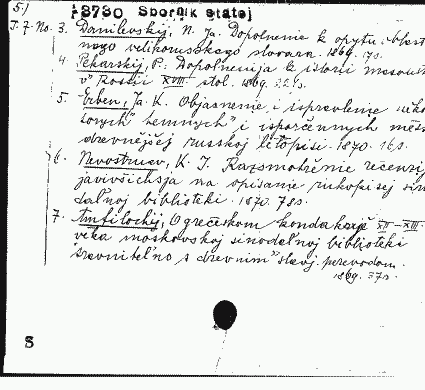 5.) 18730 Sbornik statej
T. 7. No. 3. Danilevskij, N. Ja. Dopolnenie k opytu oblast
nago velikorusskago slovarja. 1869. 17s.
4. Pekarskij, P. Dopolnenija k istorii masons
v" Rossii XVIII stol. 1869.
5. Erben, Ja. K. Objasnenie i ispravlenie něko
toryh" temnyh" i isporčennyh měs
drevnějšej russkoj lětopisi. 1870. 16s.
6. Nevostruev, K. I. Razsmotrěnie recenzij
javivšichsja na opisanie rukopisej sino
dal'noj biblioteki. 1870. 78s.
7. Amfilochij, O grečeskom kondakarě XII-XIII
věka moskovskoj sinodal'noj biblioteki
sravnitel'no s drevnim" slavj. perevodom.
1869. 37s.
S